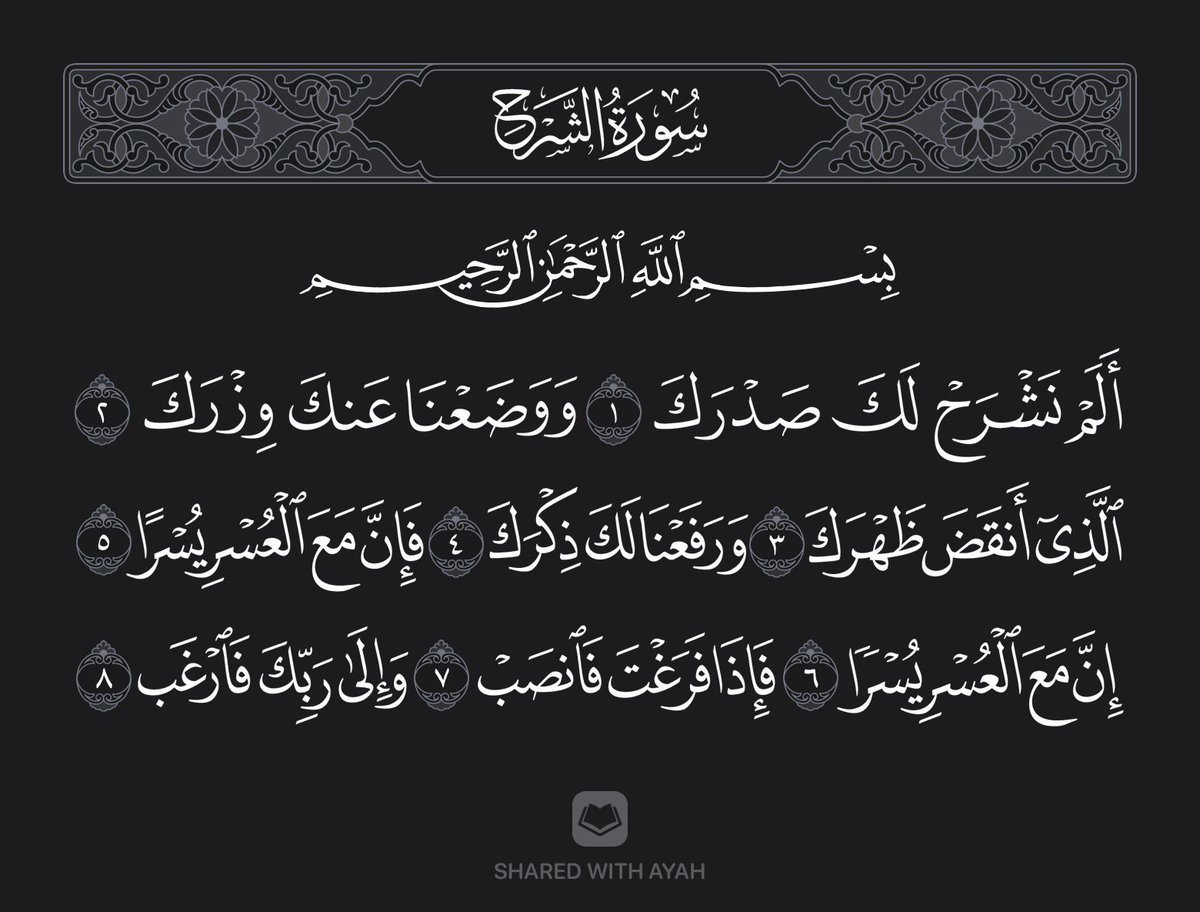 سُورَةُ الشَّرْحِ
بِسْمِ ٱللَّهِ ٱلرَّحْمَٰنِ ٱلرَّحِيمِ
أَلَمْ نَشْرَحْ لَكَ صَدْرَكَ ١ وَوَضَعْنَا عَنكَ وِزْرَكَ ٢
ٱلَّذِىٓ أَنقَضَ ظَهْرَكَ ٣ وَرَفَعْنَا لَكَ ذِكْرَكَ ٤ فَإِنَّ مَعَ ٱلْعُسْرِ يُسْرًا ٥
إِنَّ مَعَ ٱلْعُسْرِ يُسْرًا ٦ فَإِذَا فَرَغْتَ فَٱنصَبْ ٧ وَإِلَىٰ رَبِّكَ فَٱرْغَب ٨
SHARED WITH AYAH